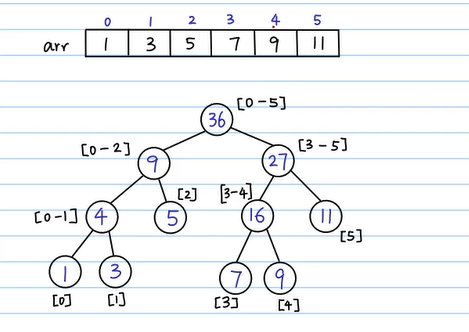 0 1 2 3 4 5
arr 1 3 5 7 9 11
36 [0-5]
[0-2] 9 27 [3-5]
[0-1] 4 5 [2] [3-4] 16 11 [5]
1 3 7 9
[0] [1] [3] [4]